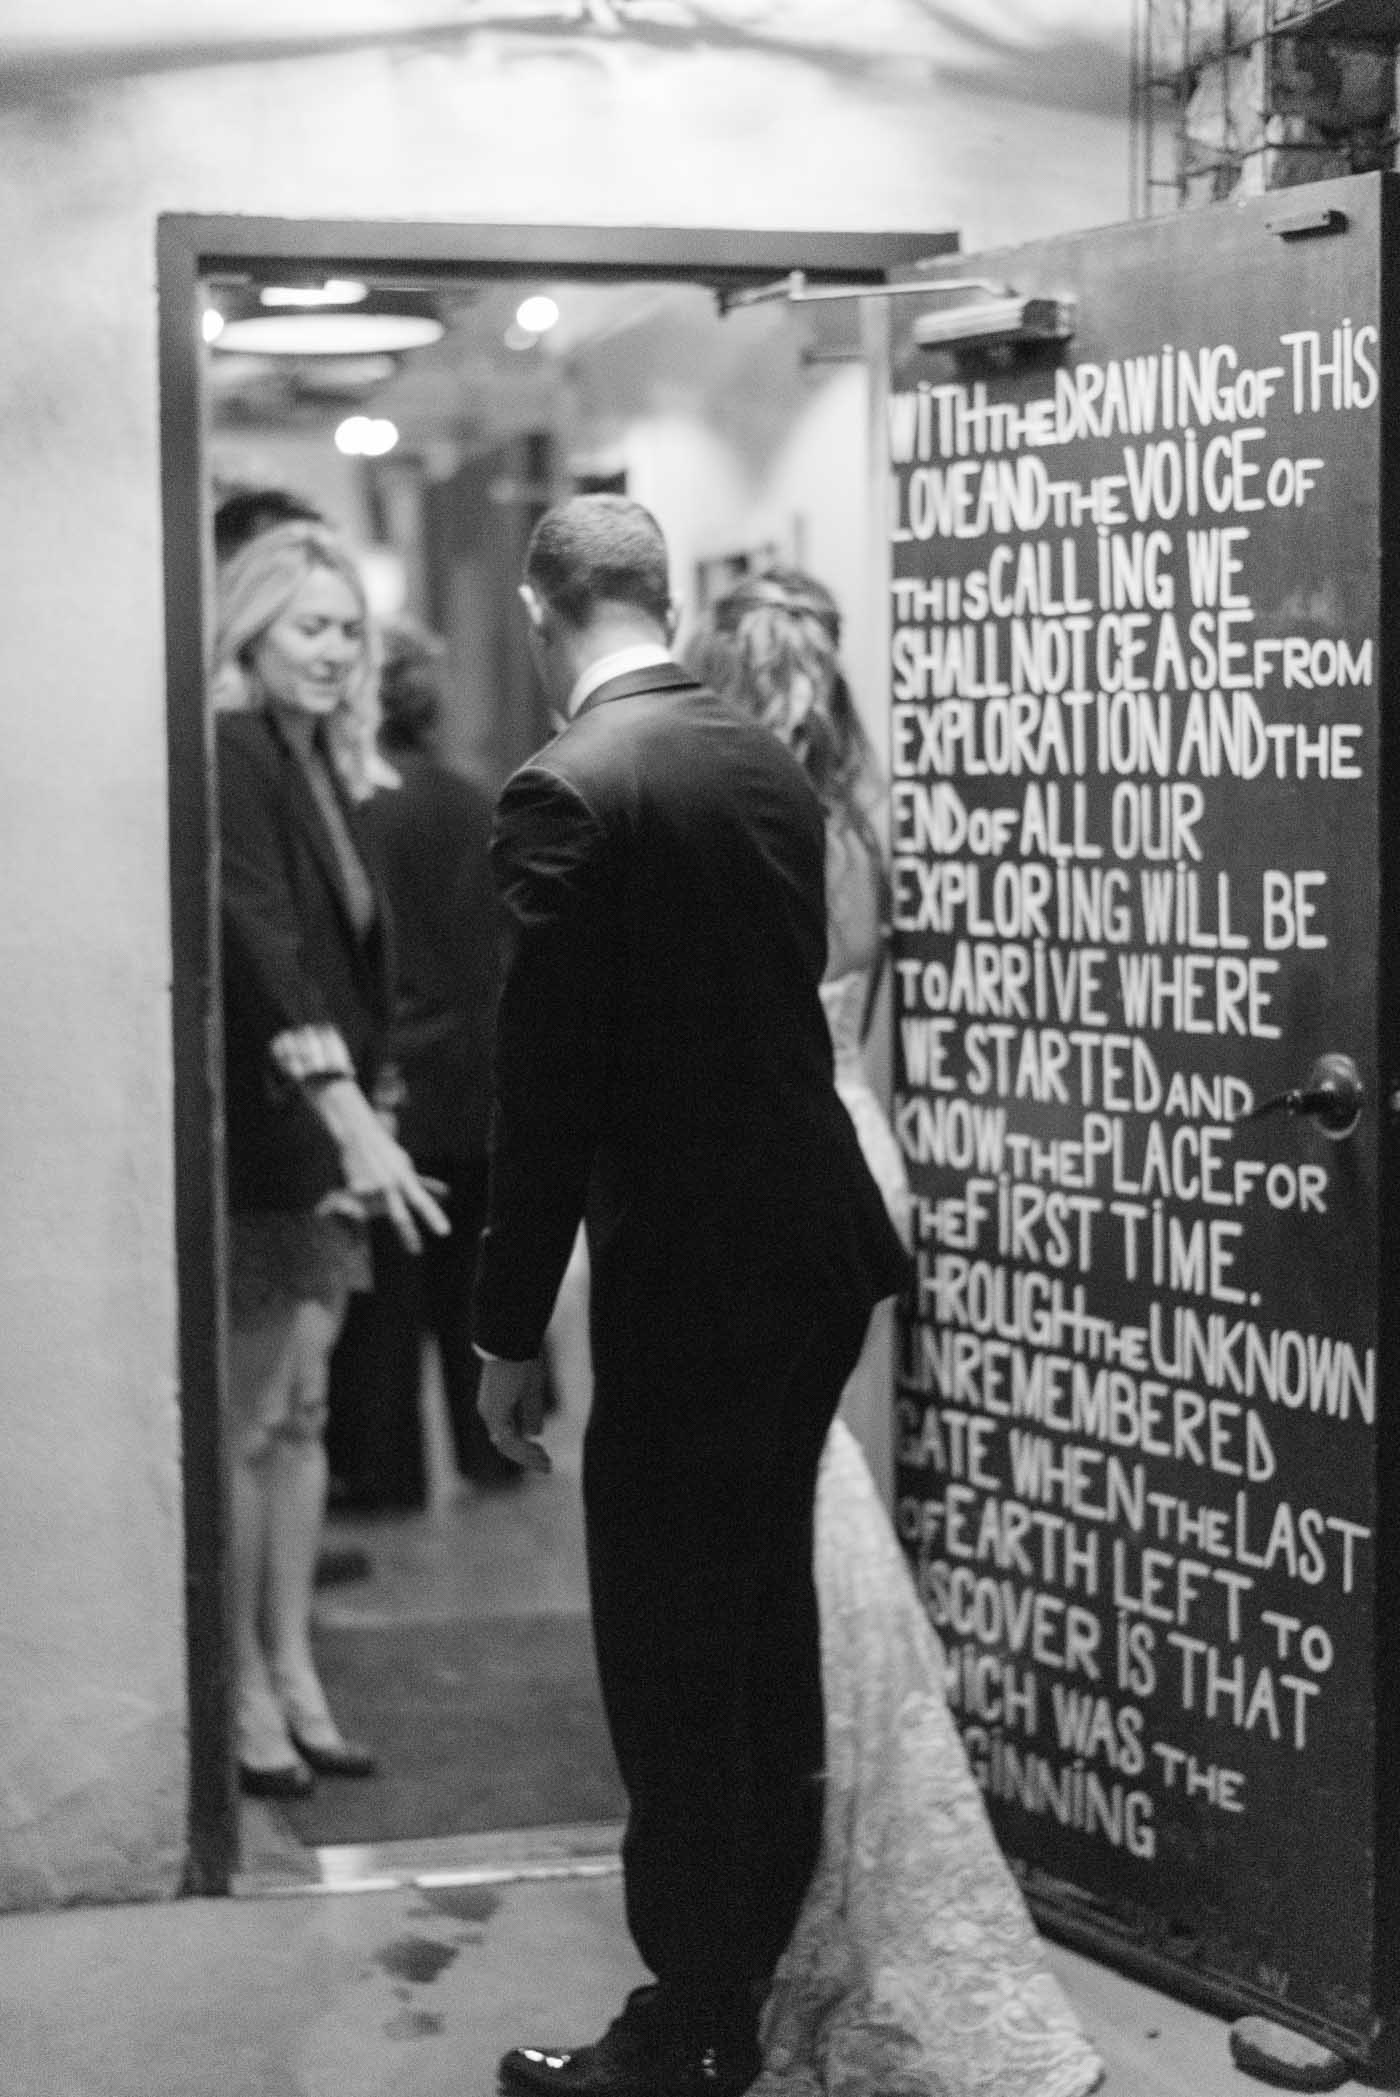 WITH THE DRAWING OF THIS
LOVE AND THE VOICE OF
THIS CALLING WE
SHALL NOT CEASE FROM
EXPLORATION AND THE
END OF ALL OUR
EXPLORING WILL BE
TO ARRIVE WHERE
WE STARTED AND
KNOW THE PLACE FOR
THE FIRST TIME.
THROUGH THE UNKNOWN
UNREMEMBERED
GATE WHEN THE LAST
OF EARTH LEFT TO
DISCOVER IS THAT
WHICH WAS THE
BEGINNING